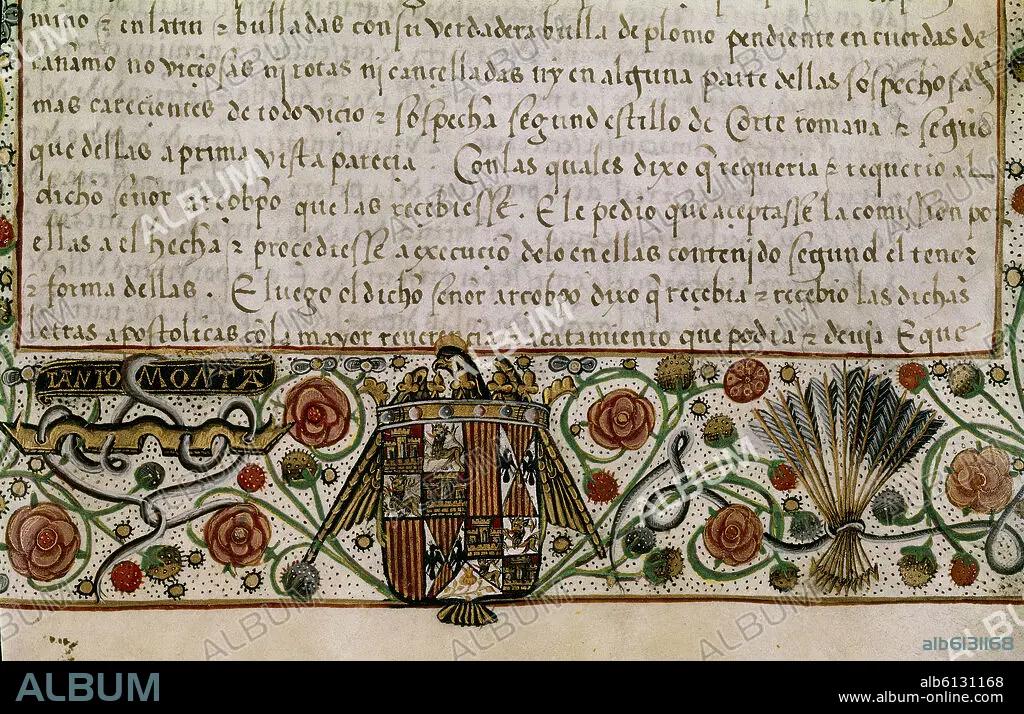 mino ⁊ en latin ⁊ bulladas con su verdadera bulla de plomo pendiente en cuerdas de
cañamo no viciosas ni rotas ni cancelladas ny en alguna parte dellas sospechosas
mas carecientes de todo vicio ⁊ sospecha segund estillo de Corte romana ⁊ segũd
que dellas a prima vista parecia Con las quales dixo q̃ requeria ⁊ requerio al
dicho señor arcobp̃o que las recebiesse. E le pedio que aceptasse la comission por
ellas a el hecha ⁊ procediesse a execuciõ de lo en ellas contenido segund el tenor
⁊ forma dellas. E luego el dicho señor arcobp̃o dixo q̃ reçebia ⁊ recebio las dichas
letras apostolicas cõ la mayor reuerencia acatamiento que podia ⁊ deuia E que
TANTO MONTA
alb6131168
ALBUM
alb6131168
www.album-online.com